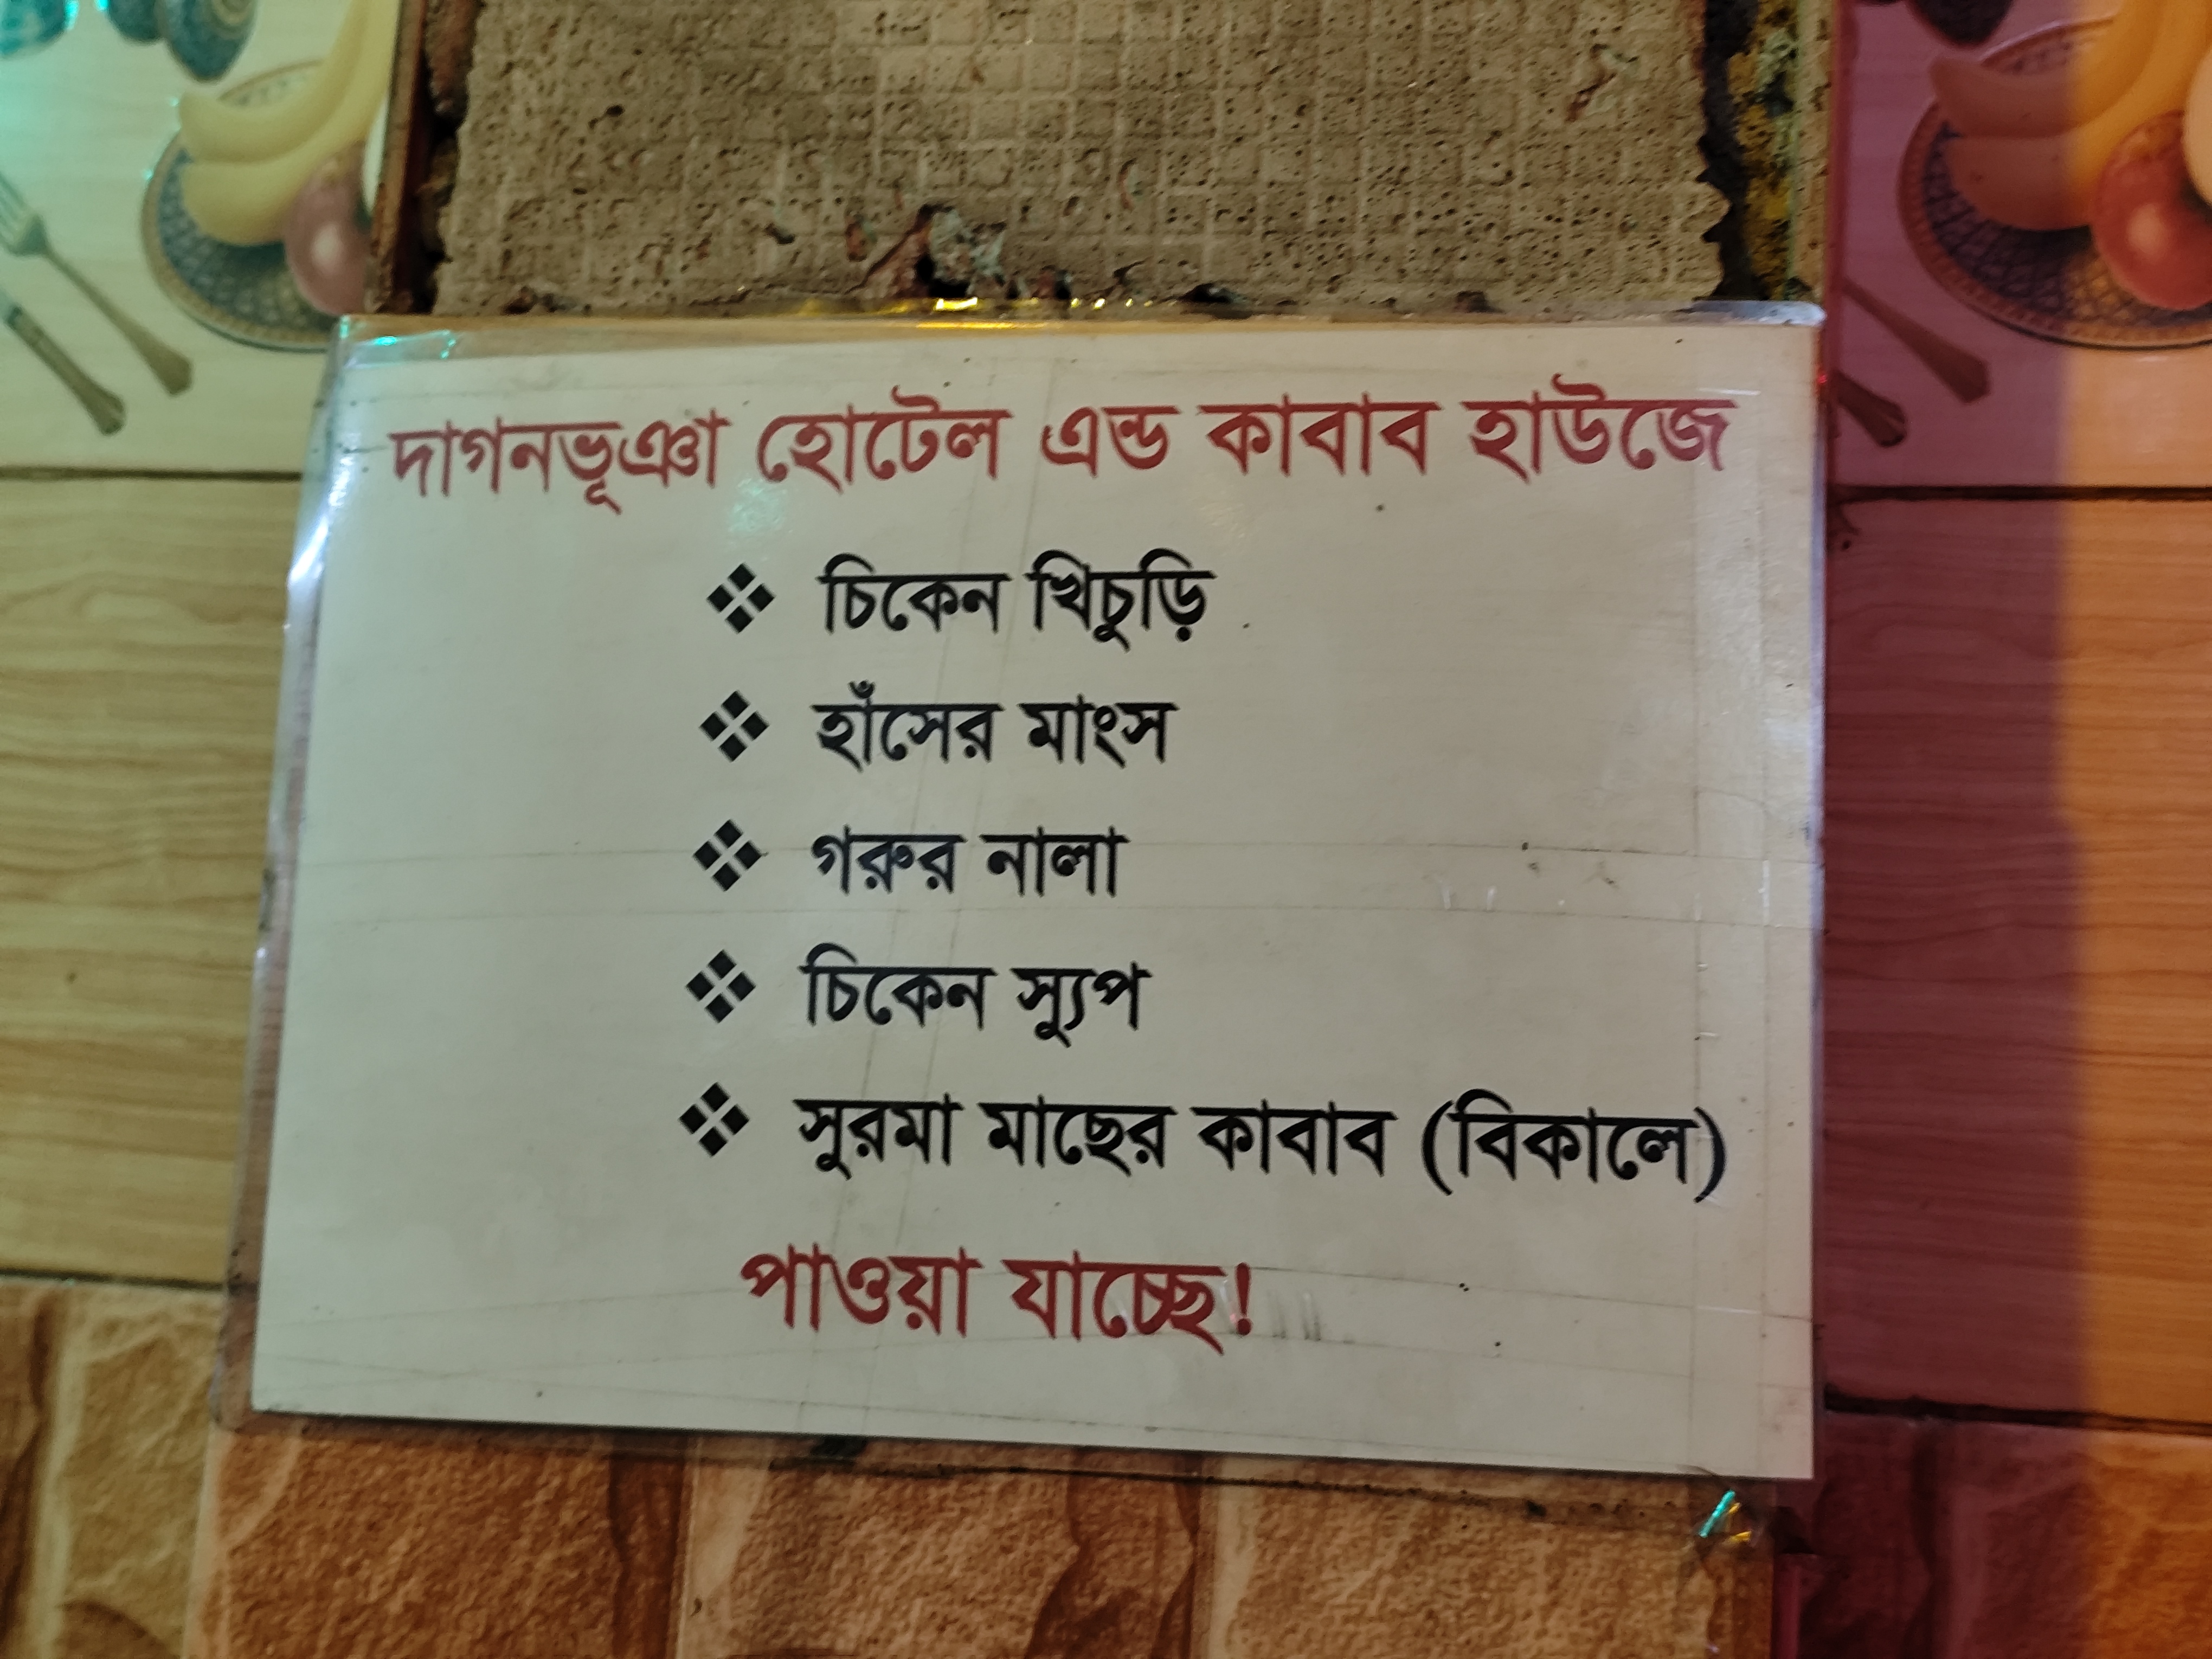 দাগনভূঞা হোটেল এন্ড কাবাব হাউজে
❖ চিকেন খিচুড়ি
❖ হাঁসের মাংস
❖ গরুর নালা
❖ চিকেন স্যুপ
❖ সুরমা মাছের কাবাব (বিকালে)
পাওয়া যাচ্ছে!